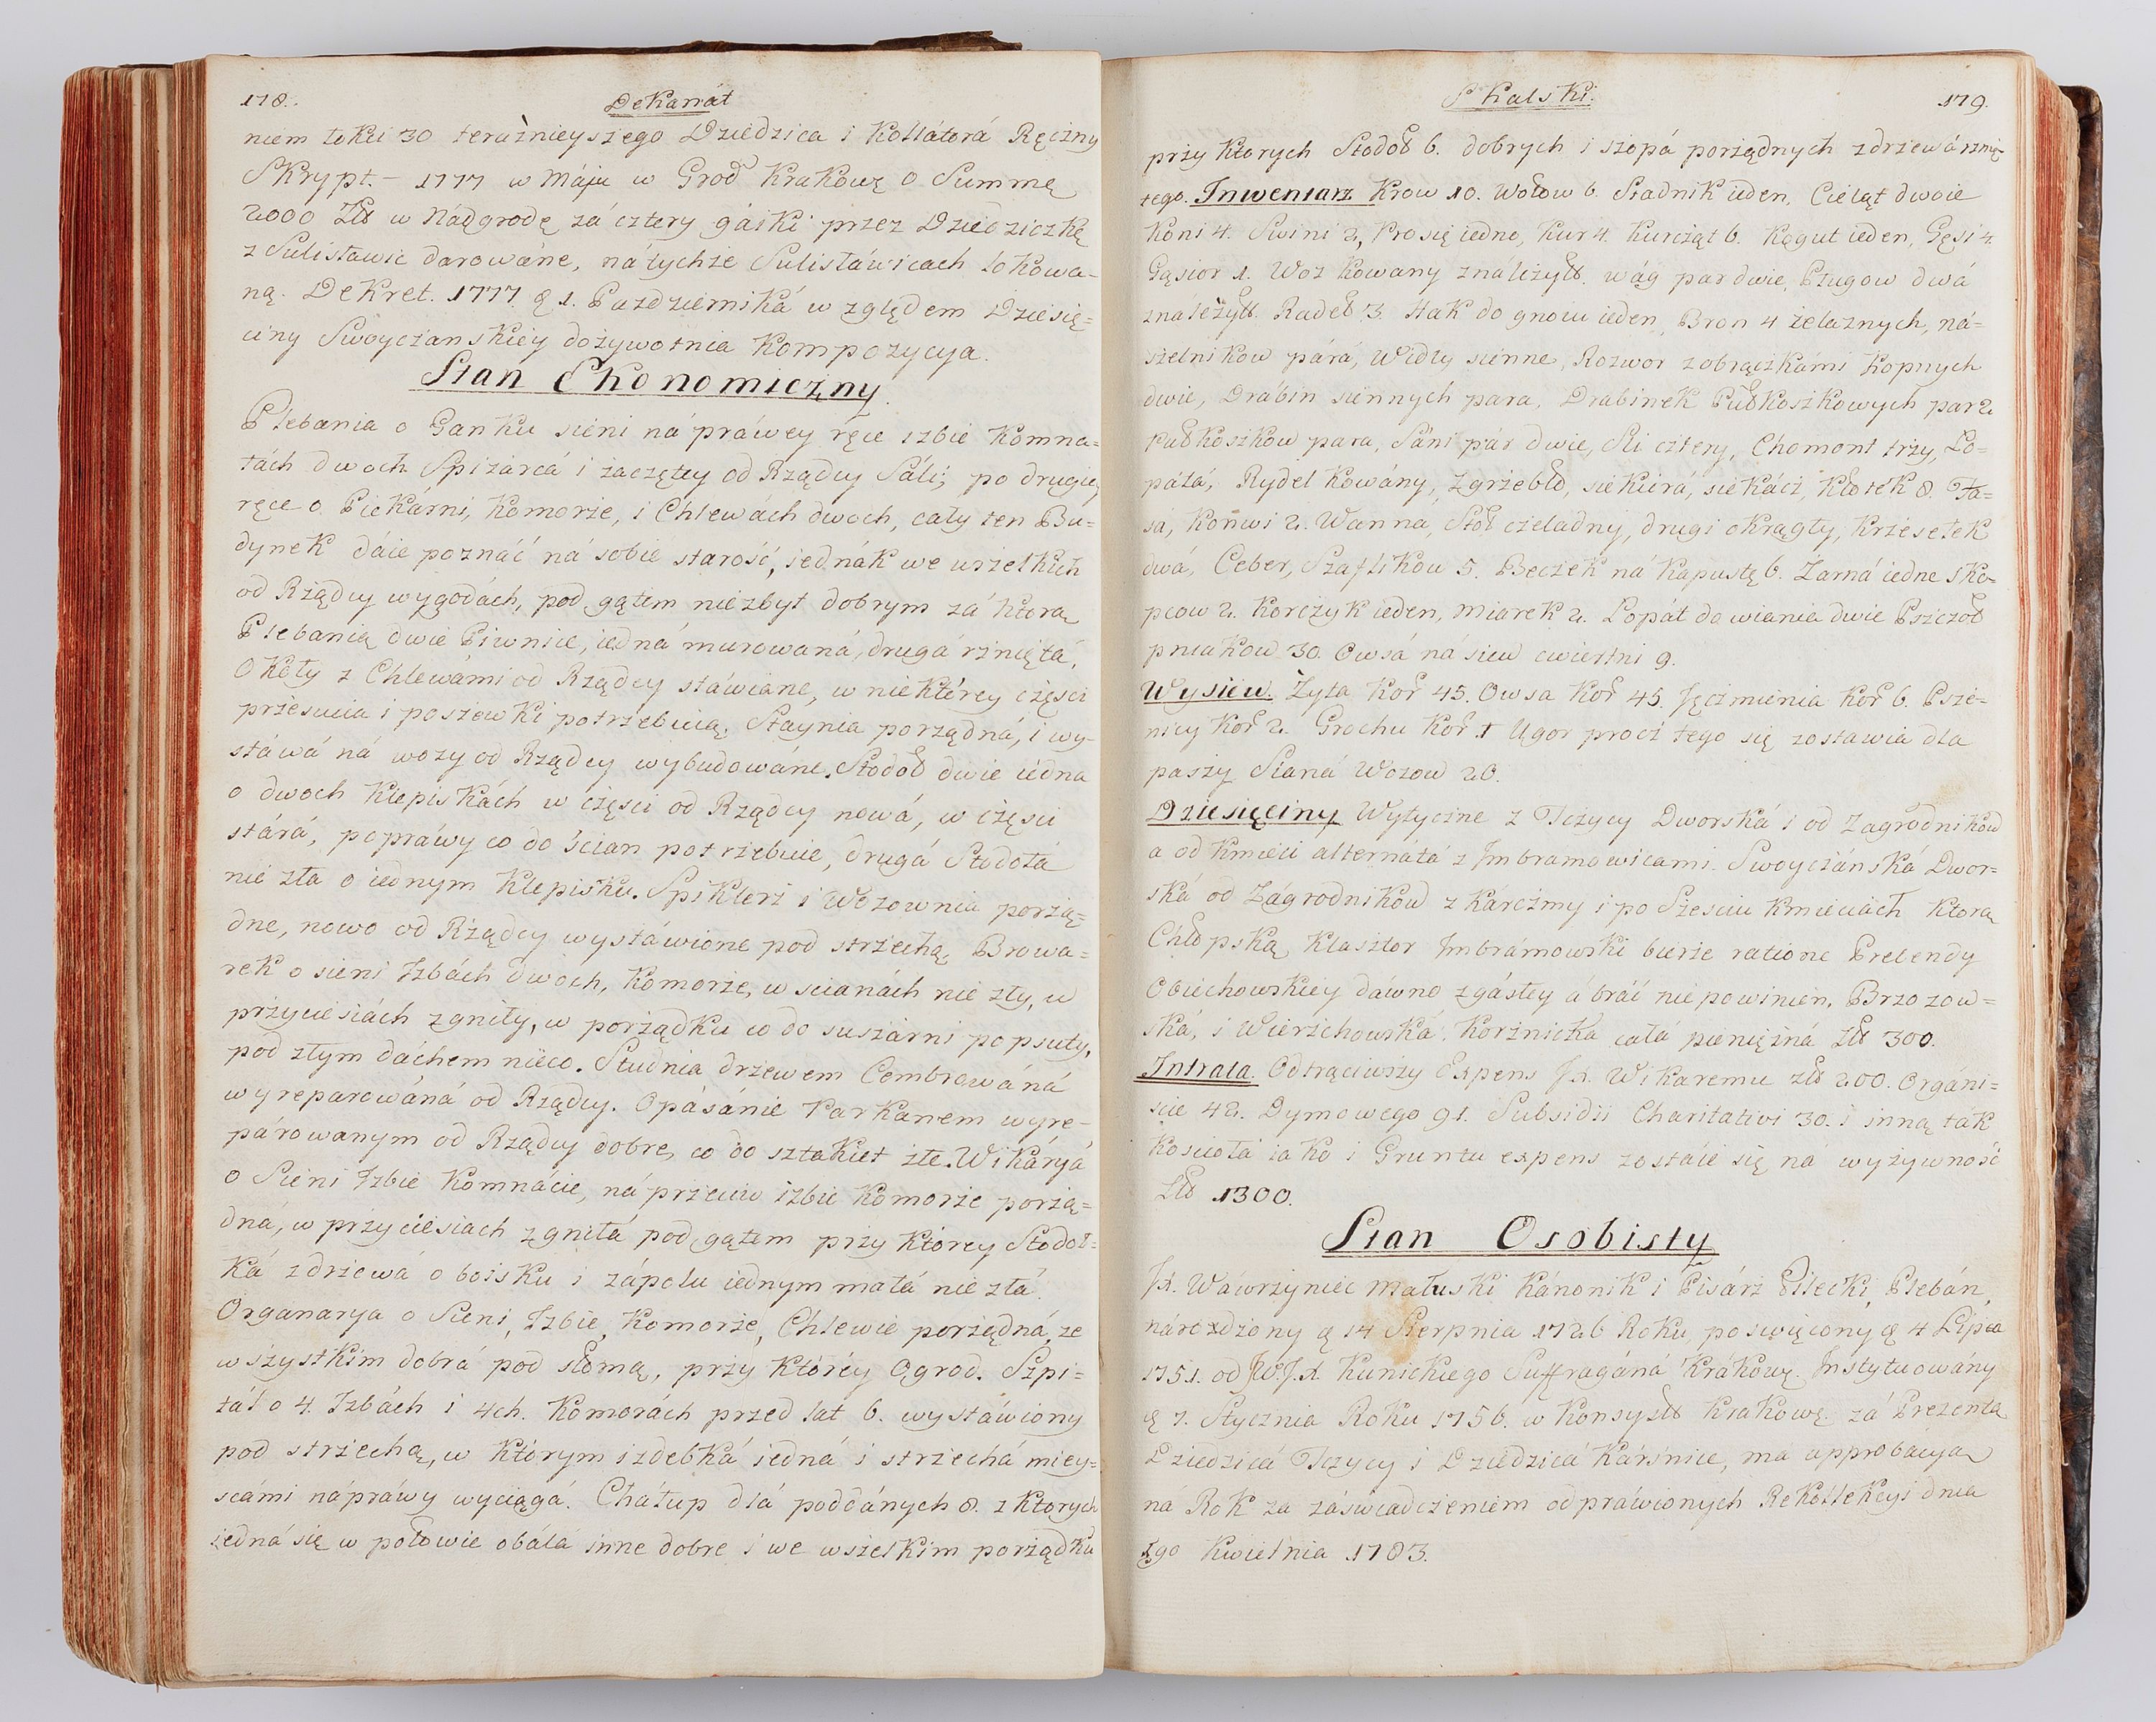 178.
Dekanat
niem łokci 30 teraźnieyszego Dziedzica i Kollátorá Ręczny
Skrypt. 1777 w Máju w Grod Krakowę o Summę
2000 Zł w Nádgrodę zá cztery gáiki przez Dziedziczkę
z Sulisławic darowáne, ná tychże Sulisławicach lokowa-
ną. Dekret. 1777 1. Pazdzierniká w zględem Dziesię=
ciny Swoyczanskiey dożywotnia Kompozycya.
Stan Ekonomiczny.
Plebania o Ganku sieni ná práwey ręce izbie Komna=
tách dwoch Spizarcá i záczętey od Rządcy Sáli; po drugiey
ręce o Piekárni, Komorze, i Chlewách dwoch, cały ten Bu=
dynek dáie poznáć ná sobie starość, jednák we wszelkich
od Rządcy wygodách, pod gątem niezbyt dobrym zá Ktorą
Plebanią dwie Piwnice, iedná murowaná, drugá rznięta,
Okoły z Chlewámi od Rządcy stáwiane, w niektórey części
przesucia i poszewki potrzebuią. Staynia porządná, i wy-
stáwá ná wozy od Rządcy wybudowáne. Stodoł dwie iedna
o dwoch Klepiskách w części od Rządcy nowá, w części
stárá, popráwy co do ścian potrzebuie, drugá Stodołá
nie zła o iednym Klepisku. Spiklerz i Wozownia porzą=
dne, nowo od Rządcy wystáwione pod strzechą. Browa=
rek o sieni Izbách dwoch, Komorze, w scianách nie zły, w
przyciesiách zgniły, w porządku co do suszárni popsuty,
pod złym dáchem nieco. Studnia drzewem Cembrowáná
wyreparowáná od Rządcy. Opásanie Parkanem wyre-
párowanym od Rządcy dobre, co do sztakiet złe. Wikáryá
o Sieni Izbie Komnacie, ná przeciw izbie Komorze porzą=
dná, w przyciesiach zgniłá pod gątem przy Ktorey Stodoł=
ká z drzewá o boisku i zápolu iednym małá nie złá.
Organarya o Sieni, Izbie, Komorze, Chlewie porządná, ze
wszystkim dobrá pod słomą, przy Ktoréy Ogrod. Szpi=
tál o 4. Izbách i 4ch. Komorách przed lat 6. wystáwiony
pod strzechą, w Którym izdebká iedná i strzechá miey=
scámi náprawy wyciągá. Cháłup dlá poddánych 8. z Ktorych
iedná się w połowie obálá inne dobre i we wszelkim porządku
Skalski.
179.
przy Ktorych Stodoł 6. dobrych i szopá porządnych z drzewá rznię-
tego. Inwentarz Krow 10. Wołow 6. Stadnik ieden, Cieląt dwoie
Koni 4. Swini 2, Prosię iedno, Kur 4. Kurcząt 6. Kogut ieden, Gęsi 4.
Gąsior 1. Woz Kowany z należytł. wág par dwie, Pługow dwá
z należytł. Radeł 3. Hak do gnoiu ieden, Bron 4 żelaznych, ná=
szelnikow párá, Widły sienne, Rozwor z obrączkámi Kopnych
dwie, Drábin siennych para. Drabinek Pułkoszkowych par 2
Pułkoszkow para, Sáni pár dwie, Sli cztery, Chomont trzy, Ło=
pátá, Rydel Kowány, Zgrzebło, siekiérá, siekácz, Kłotek 8. Fa=
sá, Konwi 2. Wanná, Stoł czeladny, drugi okrągły, Krzesełek
dwá, Ceber, Szaflikow 5. Beczek ná Kapustę 6. Zarná iedne Sko-
pcow 2. Korczyk ieden, Miarek 2. Łopát do wiania dwie Pszczoł
pniakow 30. Owsá ná siew cwiertni 9.
Wysiew. Zyta Kor 45. Owsa Kor 45. Jęczmienia Kor 6. Psze=
nicy Kor 2. Grochu Kor 1 Ugor procz tego się zostawia dla
paszy Sianá Wozow 20.
Dziesięciny Wytyczne z Tczycy Dworská i od Zagrodnikow
a od Kmieci alternátá z Imbramowicami. Swoyczánská Dwor=
ská od Zágrodnikow z Kárczmy i po Szesciu Kmieciách Ktorą
Chłopską Klasztor Imbrámowski bierze ratione Prebendy
Obiechowskiey dáwno zgásłey á bráć niepowinien, Brzozow=
ská, i Wierzchowská. Korzniczka całá pieniężná Zł 300.
Intrata. Odtrąciwszy Expens JX. Wikaremu zł 200. Orgáni=
scie 42. Dymowego 91. Subsidii Charitativi 30. i inną ták
Koscioła iako i Gruntu expens zostáie się ná wyżywność
Zł 1300.
Stan Osobisty
JX. Wáwrzyniec Małuski Kánonik i Pisárz Pilecki, Plebán,
národzony 14 Sierpnia 1726 Roku, poswięcony 4 Lipca
1751. od JW.J.X. Kunickiego Suffragáná Krákowę. Instytuowány
7. Stycznia Roku 1756. w Konsysł Krakowę. zá Prezentą
Dziedzicá Tczycy i Dziedzicá Kárśnice, má approbácyą
ná Rok za záswiadczeniem odpráwionych Rekollekcyi dnia
1go Kwietnia 1783.